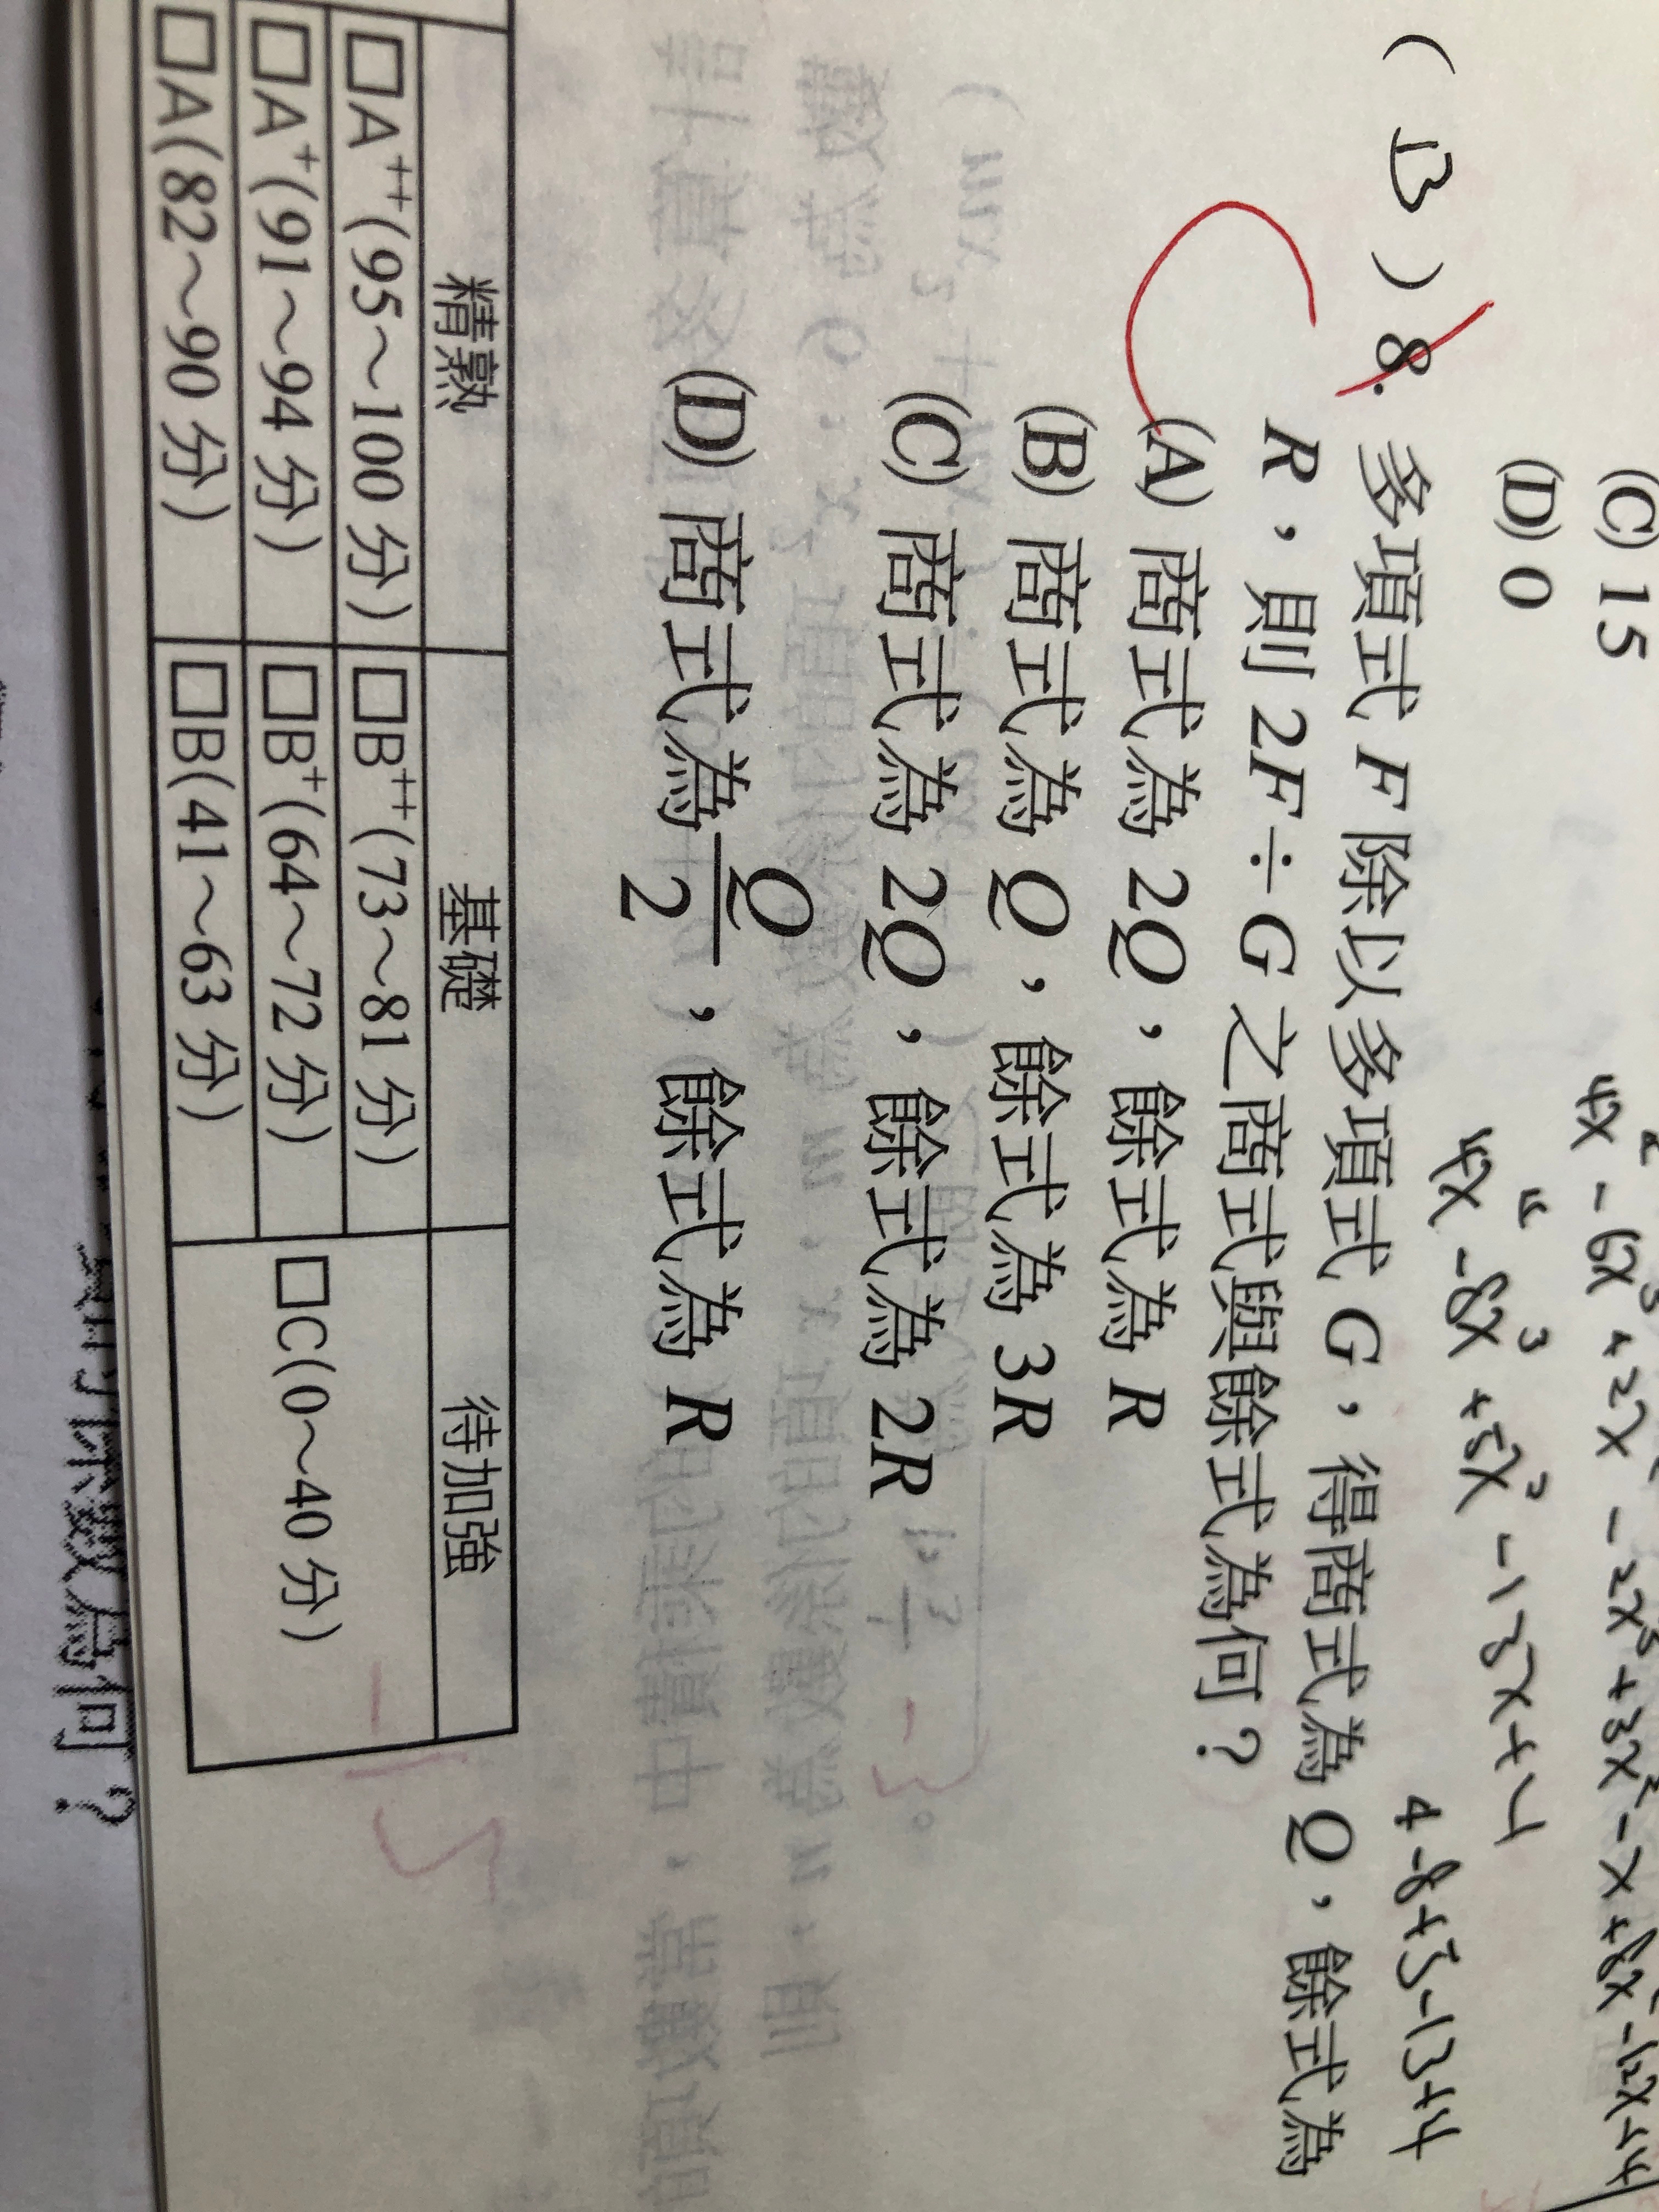 (C) 15
(D) 0
4x² - 8x³ + 5x² - 13x + 4
4 - 8 + 5 - 13 + 4
( B ) 8. 多項式 F 除以多項式 G，得商式為 Q，餘式為
R，則 2F ÷ G 之商式與餘式為何？
(A) 商式為 2Q，餘式為 R
(B) 商式為 Q，餘式為 3R
(C) 商式為 2Q，餘式為 2R
(D) 商式為 Q/2，餘式為 R
精熟 基礎 待加強
□A⁺⁺(95～100 分) □B⁺⁺(73～81 分) □C(0～40 分)
□A⁺(91～94 分) □B⁺(64～72 分)
□A(82～90 分) □B(41～63 分)
數為何？